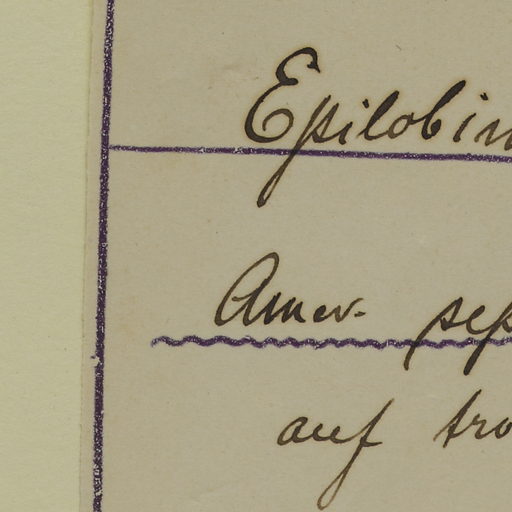 Epilobiu
Amer. sep
auf tro